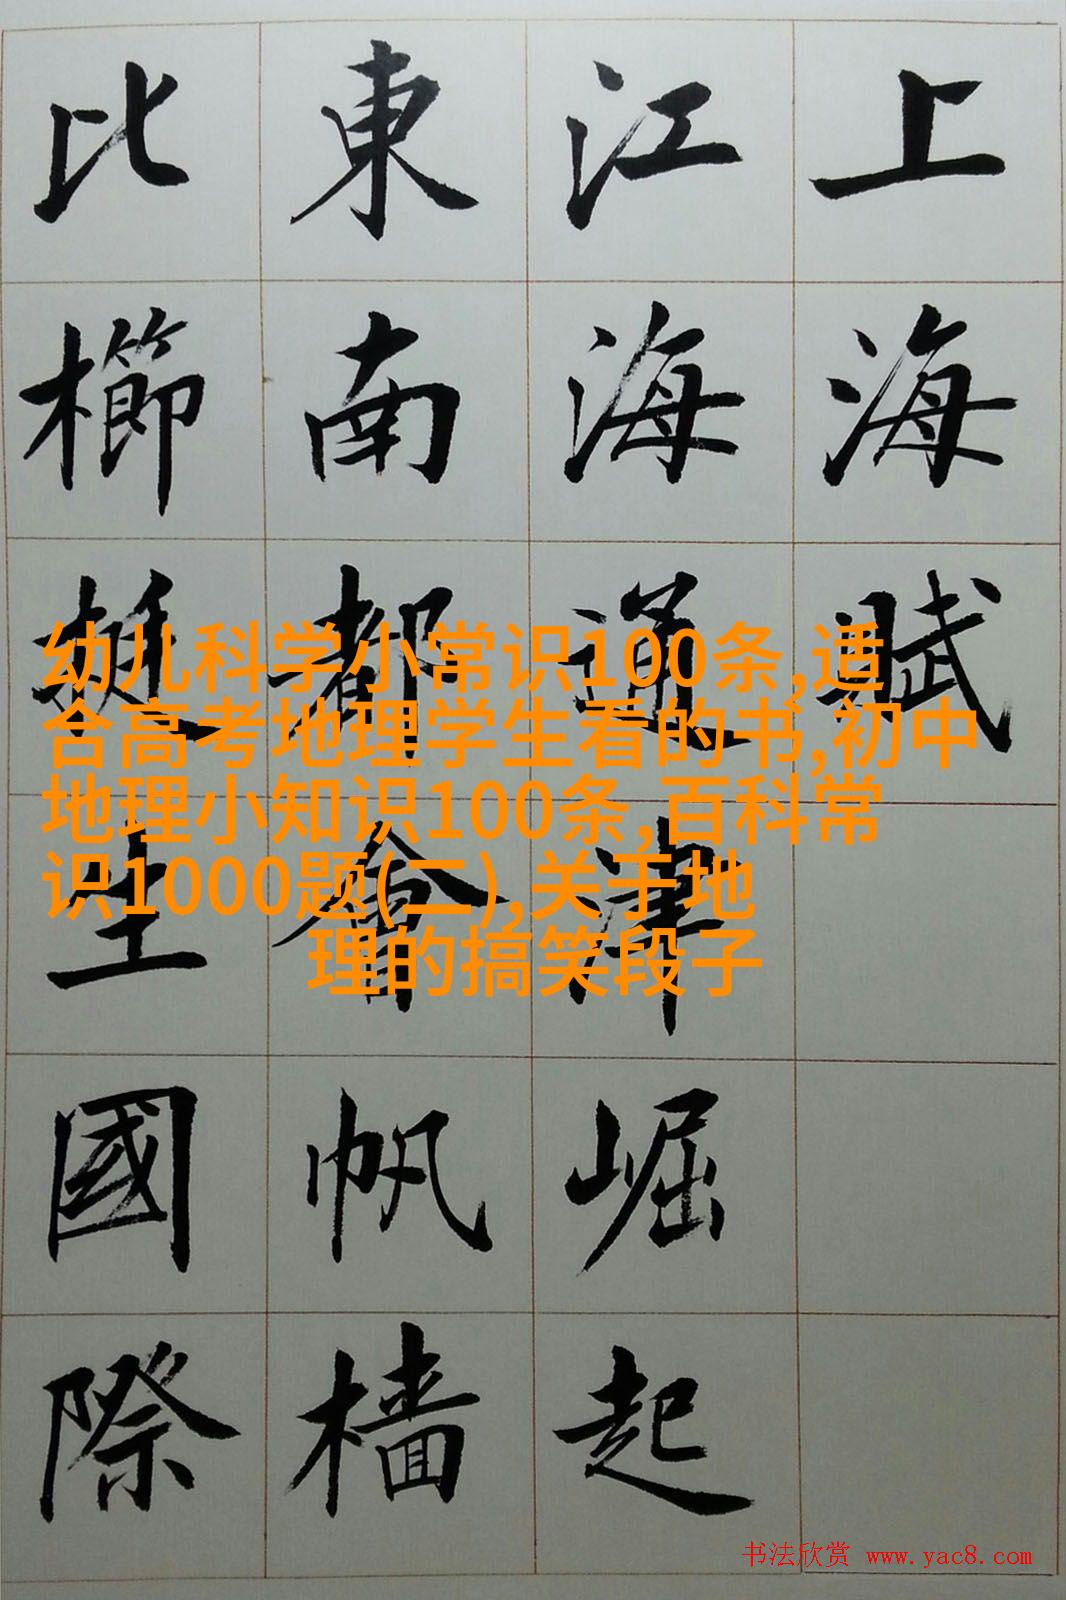 上海賦
江海通津崛起
東南都會帆檣
比櫛挺生國際
幼儿科学小常识100条,适
合高考地理学生看的书,初中
地理小知识100条,百科常
识1000题(二),关于地
理的搞笑段子
书法欣赏 www.yac8.com